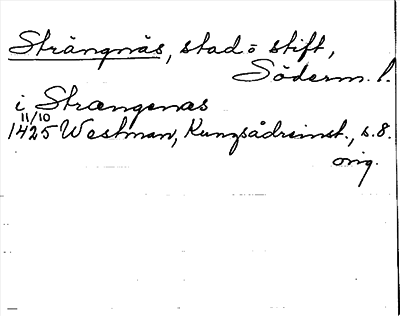 Strängnäs, stad o stift,
Söderm. l.
i Strængenæs
11/10
1425 Westman, Kungsådreinst., s. 8.
orig.